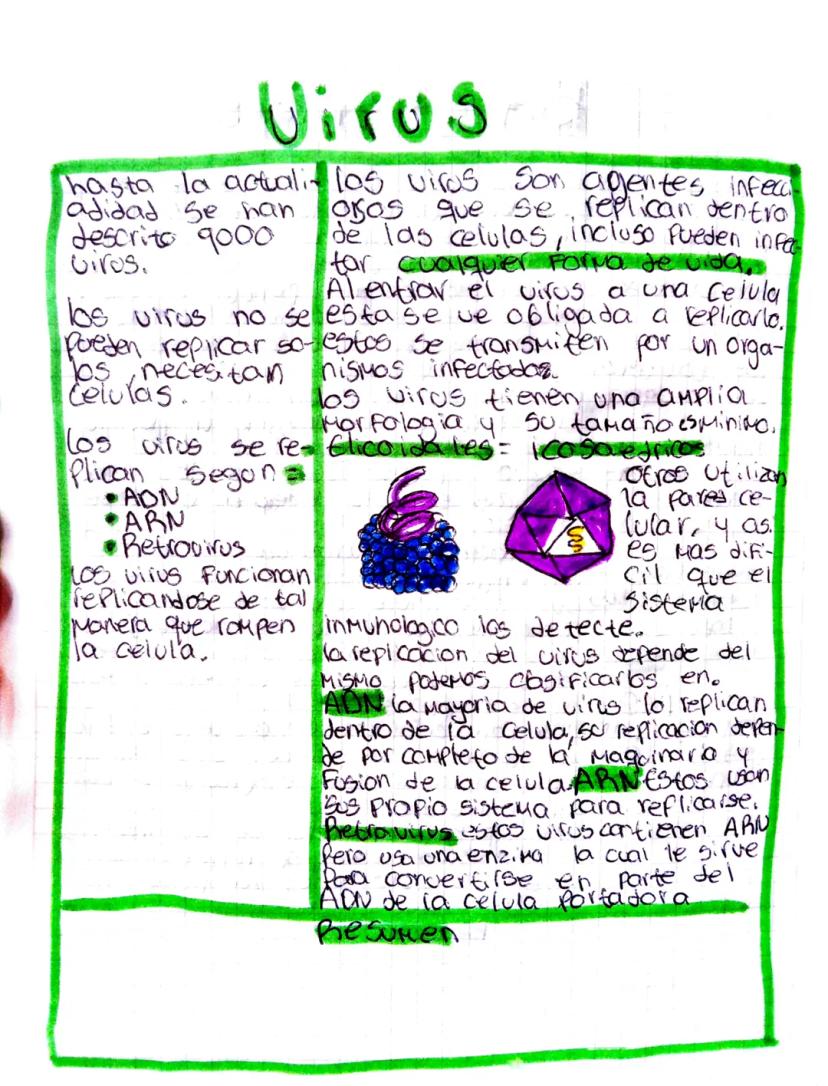 Virus
hasta la actuali-
adidad se han
descrito 9000
virus.
los virus no se
pueden replicar so-
los, necesitan
celulas.
los virus se re-
plican segun =
• ADN
• ARN
• Retrovirus
los virus funcionan
replicandose de tal
manera que rompen
la celula.
los virus son agentes infecci-
osos que se replican dentro
de las celulas, incluso pueden infec-
tar cualquier forma de vida.
Al entrar el virus a una celula
esta se ve obligada a replicarlo.
estos se transmiten por un orga-
nismos infectados.
los virus tienen una amplia
morfologia y su tamaño es minimo.
Elicoidales = icosaedricos
otros utilizan
la pared ce-
lular, y asi
es mas difi-
cil que el
sistema
inmunologico los detecte.
la replicacion del virus depende del
mismo podemos clasificarlos en.
ADN la mayoria de virus lo replican
dentro de la celula, su replicacion depen-
de por completo de la maquinaria y
fusion de la celula. ARN estos usan
sus propio sistema para replicarse.
Retrovirus estos virus contienen ARN
pero usa una enzima la cual le sirve
para convertirse en parte del
ADN de la celula portadora
Resumen